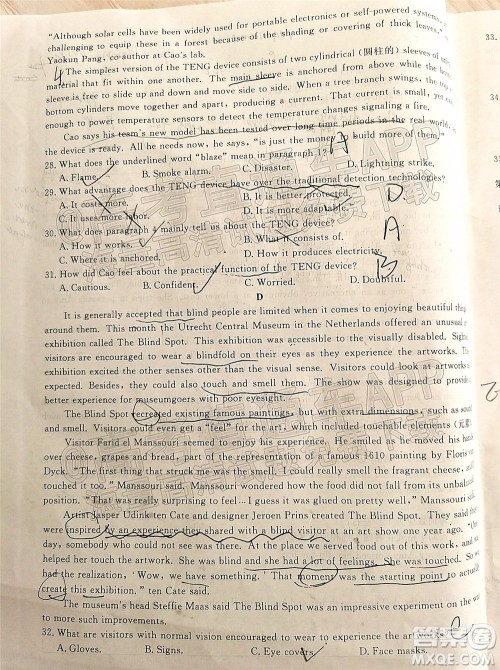 "Although solar cells have been widely used for portable electronics or self-powered systems,
challenging to equip these in a forest because of the shading or covering of thick leaves,"
Yaokun Pang, co-author at Cao's lab.
4 The simplest version of the TENG device consists of two cylindrical (圆柱的) sleeves of
material that fit within one another. The main sleeve is anchored from above while the
sleeve is free to slide up and down and move side to side. When a tree branch swings, the top
bottom cylinders move together and apart, producing a current. That current is small, yet
enough to power temperature sensors to detect the temperature changes signaling a fire.
Cao says his team's new model has been tested over long time periods in the real world,
the device is ready. All he needs now, he says, "is just the money to build more of them."
28. What does the underlined word "blaze" mean in paragraph 1? A
A. Flame. B. Smoke alarm. C. Disaster. D. Lightning strike.
29. What advantage does the TENG device have over the traditional detection technologies?
A. It costs more. B. It is better protected. D
C. It uses more labor. D. It is more adaptable.
30. What does paragraph 4 mainly tell us about the TENG device? A
A. How it works. B. What it consists of.
C. Where it is anchored. D. How it produces electricity.
31. How did Cao feel about the practical function of the TENG device? B
A. Cautious. B. Confident. C. Worried. D. Doubtful.
D
It is generally accepted that blind people are limited when it comes to enjoying beautiful things
around them. This month the Utrecht Central Museum in the Netherlands offered an unusual
exhibition called The Blind Spot. This exhibition was accessible to the visually disabled. Sighted
visitors are encouraged to wear a blindfold on their eyes as they experience the artworks. The
exhibition excited the other senses other than the visual sense. Visitors could look at artworks
expected. Besides, they could also touch and smell them. The show was designed to provide
better experience for museumgoers with poor eyesight.
The Blind Spot recreated existing famous paintings, but with extra dimensions, such as sound
and smell. Visitors could even get a "feel" for the art, which included touchable elements
Visitor Farid el Manssouri seemed to enjoy his experience. He smiled as he moved his hands
over cheese, grapes and bread, part of the representation of a famous 1610 painting by Floris van
Dyck. "The first thing that struck me was the smell. I could really smell the fragrant cheese, and
touched it too." Manssouri said. Manssouri wondered how the food did not fall from its unbalanced
position. "That was really surprising to feel—I guess it was glued on pretty well," Manssouri
Artist Jasper Udink ten Cate and designer Jeroen Prins created The Blind Spot. They said they
were inspired by an experience they shared with a blind visitor at an art show one year ago. "One
day, somebody who could not see was there. At the place we served food out of this work, and
helped her touch the artwork. She was blind and she had a lot of feelings. She was touched. So
had the realization, 'Wow, we have something.' That moment was the starting point to actually
create this exhibition," ten Cate said.
The museum's head Steffie Maas said The Blind Spot was an impressive experiment on the
to more such improvements.
32. What are visitors with normal vision encouraged to wear to experience the artworks? C
A. Gloves. B. Signs. C. Eye covers. D. Face masks.
33.